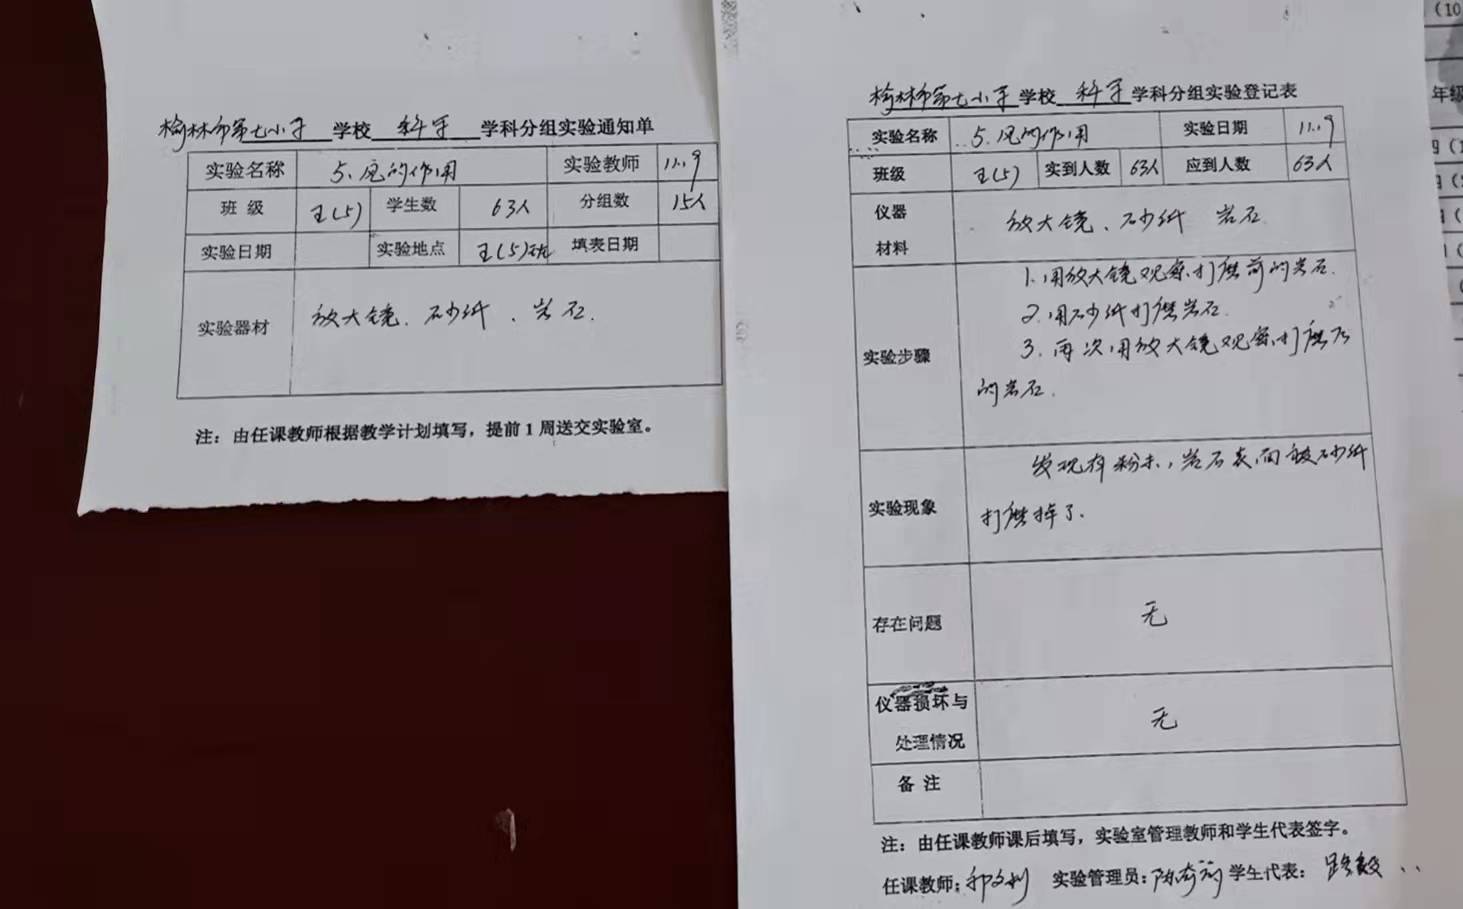 榆林市第七小学 学校 科学 学科分组实验通知单
实验名称 5.风的作用 实验教师 11.9
班 级 五(5) 学生数 63人 分组数 15人
实验日期 实验地点 五(5) 填表日期
实验器材 放大镜、砂纸、岩石.
注：由任课教师根据教学计划填写，提前1周送交实验室。
榆林市第七小学 学校 科学 学科分组实验登记表
实验名称 5.风的作用 实验日期 11.9
班级 五(5) 实到人数 63人 应到人数 63人
仪器
材料
放大镜、砂纸 岩石.
实验步骤
1.用放大镜观察打磨前的岩石.
2.用砂纸打磨岩石.
3.再次用放大镜观察打磨后
的岩石.
实验现象
发现有粉末,岩石表面被砂纸
打磨掉了.
存在问题 无
仪器损坏与
处理情况
无
备 注
注：由任课教师课后填写，实验室管理教师和学生代表签字。
任课教师: 实验管理员: 学生代表:
(10
年级